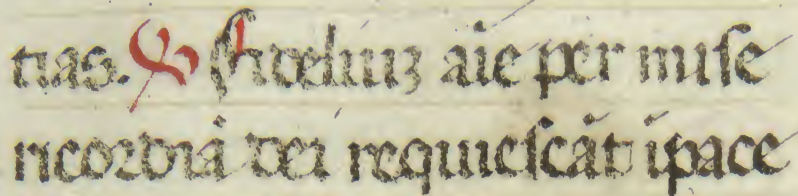 tias. ℣ Fideliuꝫ aīe per mise
ricordiā dei requiescāt ī pace